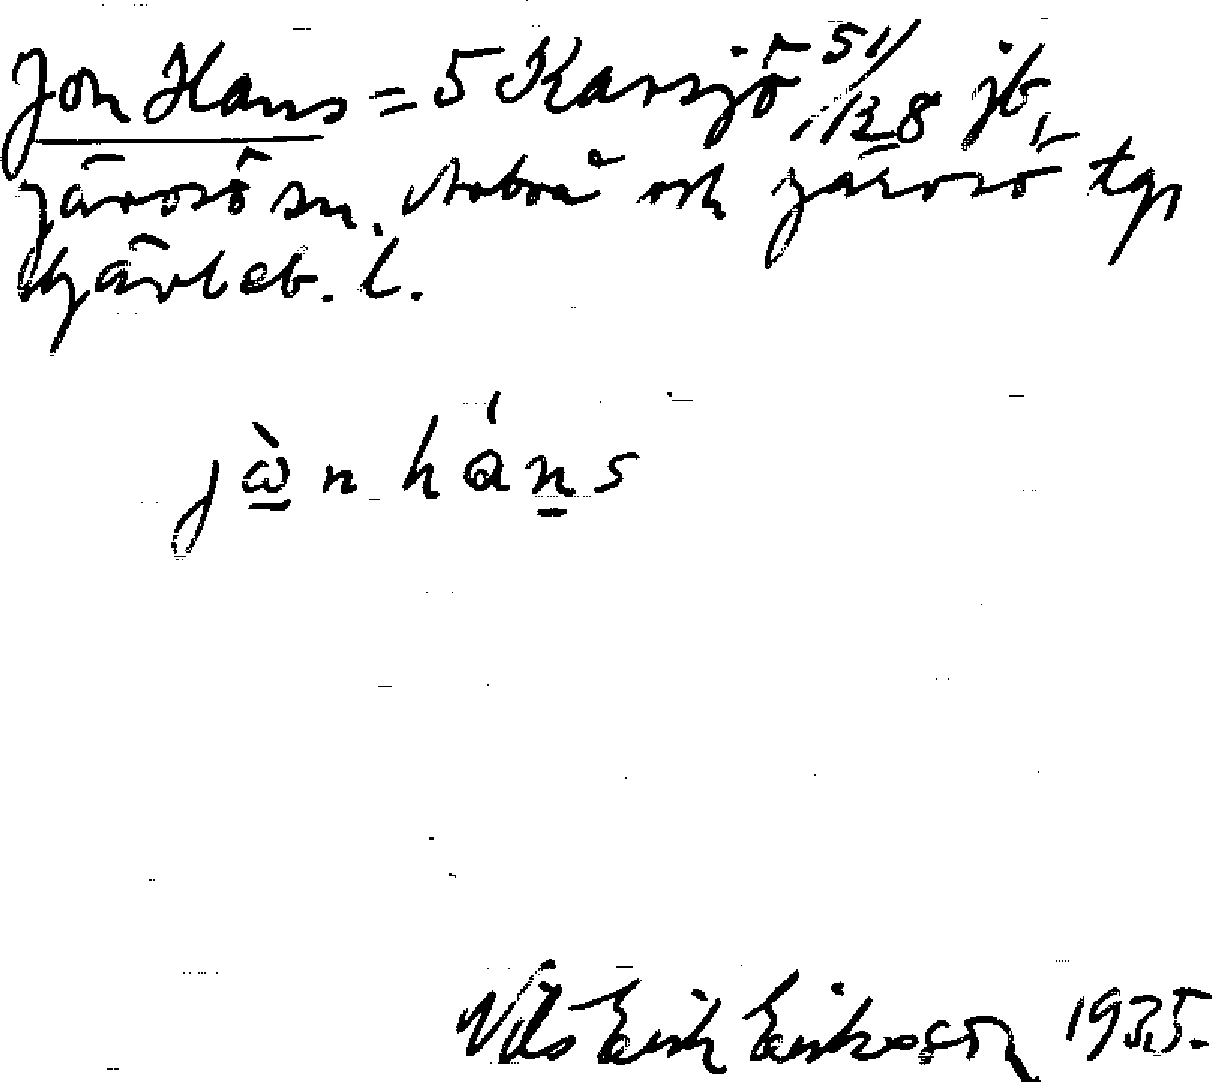 Jon Hans = 5 Karsjö 51/128 jb,
Järvsö sn. Arbrå och Järvsö tgs
Gävleb. l.
jò̱n háṉs
Nils Erik Eriksson 1935.